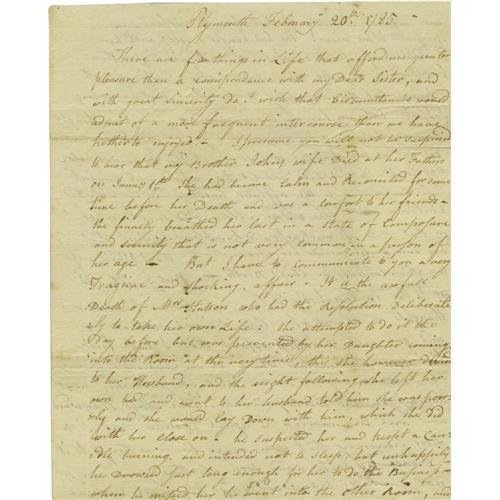 Plymouth February 20th 1785
There are few things in Life that afford me greater
pleasure than a correspondance with my Dear Sister, and
with great Sincerity do I wish that Circumstances would
admit of a more frequent intercourse than we have
hetherto enjoyed - I presume you will not be surprised
to hear that my Brother Johns wife Died at her Fathers
on Janury 1st She had become Calm and Reconciled for some
time before her Death and was a comfort to her friends -
she finaley breathed her last in a State of Composure
and serenity that is not very common in a person of
her age - But I have to communicate to you a very
Tragical and shocking affair - It is the awfull
Death of Mrs who had the Resolution Deliberate
ly to take her own Life - she attempted to do it the
Day before but was prevented by her Daughter coming
into the Room at the very time, tho she however
to her Husband, and the night following she left her
own bed and went to her husband told him she was poor
ly and she would lay Down with him, which she did
with her close on - he suspected her and keept a Can
dle burning and intended not to sleep, but unhappily
he drowsed just long enough for her to do the Business -
when he missed her he went into the other Room, and